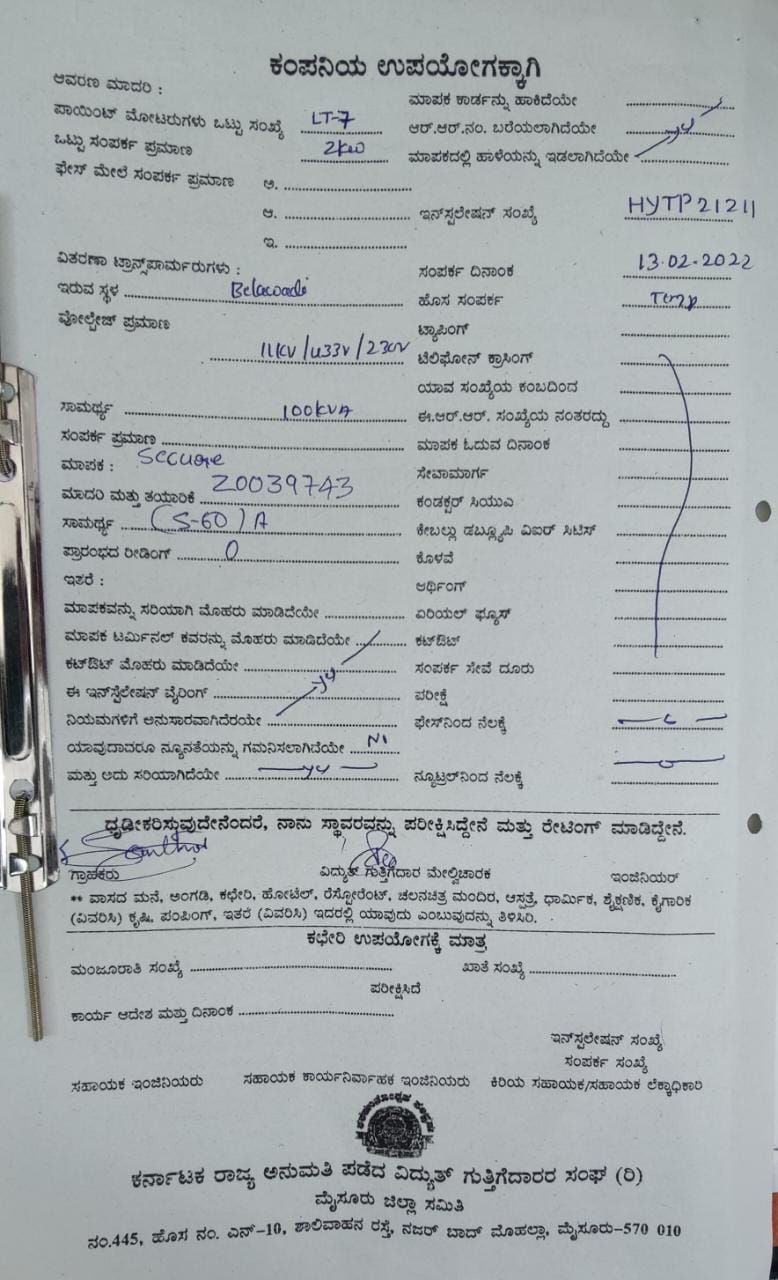 ಕಂಪನಿಯ ಉಪಯೋಗಕ್ಕಾಗಿ
ಆವರಣ ಮಾದರಿ :
ಮಾಪಕ ಕಾರ್ಡನ್ನು ಹಾಕಿದೆಯೇ
ಪಾಯಿಂಟ್ ಮೋಟರುಗಳು ಒಟ್ಟು ಸಂಖ್ಯೆ LT-7
ಆರ್.ಆರ್.ನಂ. ಬರೆಯಲಾಗಿದೆಯೇ
ಒಟ್ಟು ಸಂಪರ್ಕ ಪ್ರಮಾಣ 2kw
ಮಾಪಕದಲ್ಲಿ ಹಾಳೆಯನ್ನು ಇಡಲಾಗಿದೆಯೇ
ಫೇಸ್ ಮೇಲೆ ಸಂಪರ್ಕ ಪ್ರಮಾಣ ಅ.
ಆ. ಇನ್‌ಸ್ಪಲೇಷನ್ ಸಂಖ್ಯೆ HYTP21211
ಇ.
ವಿತರಣಾ ಟ್ರಾನ್ಸ್‌ಪಾರ್ಮರುಗಳು :
ಸಂಪರ್ಕ ದಿನಾಂಕ 13.02.2022
ಇರುವ ಸ್ಥಳ Belawadi
ಹೊಸ ಸಂಪರ್ಕ Temp
ವೋಲ್ಟೇಜ್ ಪ್ರಮಾಣ
ಟ್ಯಾಪಿಂಗ್
11KV/433V/230V ಟೆಲಿಫೋನ್ ಕ್ರಾಸಿಂಗ್
ಯಾವ ಸಂಖ್ಯೆಯ ಕಂಬದಿಂದ
ಸಾಮರ್ಥ್ಯ 100KVA
ಈ.ಆರ್.ಆರ್. ಸಂಖ್ಯೆಯ ನಂತರದ್ದು
ಸಂಪರ್ಕ ಪ್ರಮಾಣ
ಮಾಪಕ ಓದುವ ದಿನಾಂಕ
ಮಾಪಕ : Secure
ಸೇವಾಮಾರ್ಗ
ಮಾದರಿ ಮತ್ತು ತಯಾರಿಕೆ 20039743
ಕಂಡಕ್ಟರ್ ಸಿಯುಎ
ಸಾಮರ್ಥ್ಯ (5-60)A
ಕೇಬಲ್ಲು ಡಬ್ಲ್ಯೂಪಿ ವಿಐರ್ ಸಿಟಿಸ್
ಪ್ರಾರಂಭದ ರೀಡಿಂಗ್ 0
ಕೊಳವೆ
ಇತರೆ :
ಆರ್ಥಿಂಗ್
ಮಾಪಕವನ್ನು ಸರಿಯಾಗಿ ಮೊಹರು ಮಾಡಿದೆಯೇ
ಏರಿಯಲ್ ಫ್ಯೂಸ್
ಮಾಪಕ ಟರ್ಮಿನಲ್ ಕವರನ್ನು ಮೊಹರು ಮಾಡಿದೆಯೇ
ಕಟ್‌ಔಟ್
ಕಟ್‌ಔಟ್ ಮೊಹರು ಮಾಡಿದೆಯೇ
ಸಂಪರ್ಕ ಸೇವೆ ದೂರು
ಈ ಇನ್‌ಸ್ಪೆಲೇಷನ್ ವೈರಿಂಗ್
ಪರೀಕ್ಷೆ
ನಿಯಮಗಳಿಗೆ ಅನುಸಾರವಾಗಿದೆರಯೇ
ಫೇಸ್‌ನಿಂದ ನೆಲಕ್ಕೆ
ಯಾವುದಾದರೂ ನ್ಯೂನತೆಯನ್ನು ಗಮನಿಸಲಾಗಿವೆಯೇ
ಮತ್ತು ಅದು ಸರಿಯಾಗಿದೆಯೇ
ನ್ಯೂಟ್ರಲ್‌ನಿಂದ ನೆಲಕ್ಕೆ
ಧೃಡೀಕರಿಸುವುದೇನೆಂದರೆ, ನಾನು ಸ್ಥಾವರವನ್ನು ಪರೀಕ್ಷಿಸಿದ್ದೇನೆ ಮತ್ತು ರೇಟಿಂಗ್ ಮಾಡಿದ್ದೇನೆ.
ಗ್ರಾಹಕರು ವಿದ್ಯುತ್ ಗುತ್ತಿಗೆದಾರ ಮೇಲ್ವಿಚಾರಕ ಇಂಜಿನಿಯರ್
** ವಾಸದ ಮನೆ, ಅಂಗಡಿ, ಕಛೇರಿ, ಹೋಟೆಲ್, ರೆಸ್ಟೋರೆಂಟ್, ಚಲನಚಿತ್ರ ಮಂದಿರ, ಆಸ್ಪತ್ರೆ, ಧಾರ್ಮಿಕ, ಶೈಕ್ಷಣಿಕ, ಕೈಗಾರಿಕ
(ವಿವರಿಸಿ) ಕೃಷಿ, ಪಂಪಿಂಗ್, ಇತರೆ (ವಿವರಿಸಿ) ಇದರಲ್ಲಿ ಯಾವುದು ಎಂಬುವುದನ್ನು ತಿಳಿಸಿರಿ.
ಕಛೇರಿ ಉಪಯೋಗಕ್ಕೆ ಮಾತ್ರ
ಮಂಜೂರಾತಿ ಸಂಖ್ಯೆ ಖಾತೆ ಸಂಖ್ಯೆ
ಪರೀಕ್ಷಿಸಿದೆ
ಕಾರ್ಯ ಆದೇಶ ಮತ್ತು ದಿನಾಂಕ
ಇನ್‌ಸ್ಪಲೇಷನ್ ಸಂಖ್ಯೆ
ಸಂಪರ್ಕ ಸಂಖ್ಯೆ
ಸಹಾಯಕ ಇಂಜಿನಿಯರು ಸಹಾಯಕ ಕಾರ್ಯನಿರ್ವಾಹಕ ಇಂಜಿನಿಯರು ಕಿರಿಯ ಸಹಾಯಕ/ಸಹಾಯಕ ಲೆಕ್ಕಾಧಿಕಾರಿ
ಕರ್ನಾಟಕ ರಾಜ್ಯ ಅನುಮತಿ ಪಡೆದ ವಿದ್ಯುತ್ ಗುತ್ತಿಗೆದಾರರ ಸಂಘ (ರಿ)
ಮೈಸೂರು ಜಿಲ್ಲಾ ಸಮಿತಿ
ನಂ.445, ಹೊಸ ನಂ. ಎನ್-10, ಶಾಲಿವಾಹನ ರಸ್ತೆ, ನಜರ್ ಬಾದ್ ಮೊಹಲ್ಲಾ, ಮೈಸೂರು-570 010